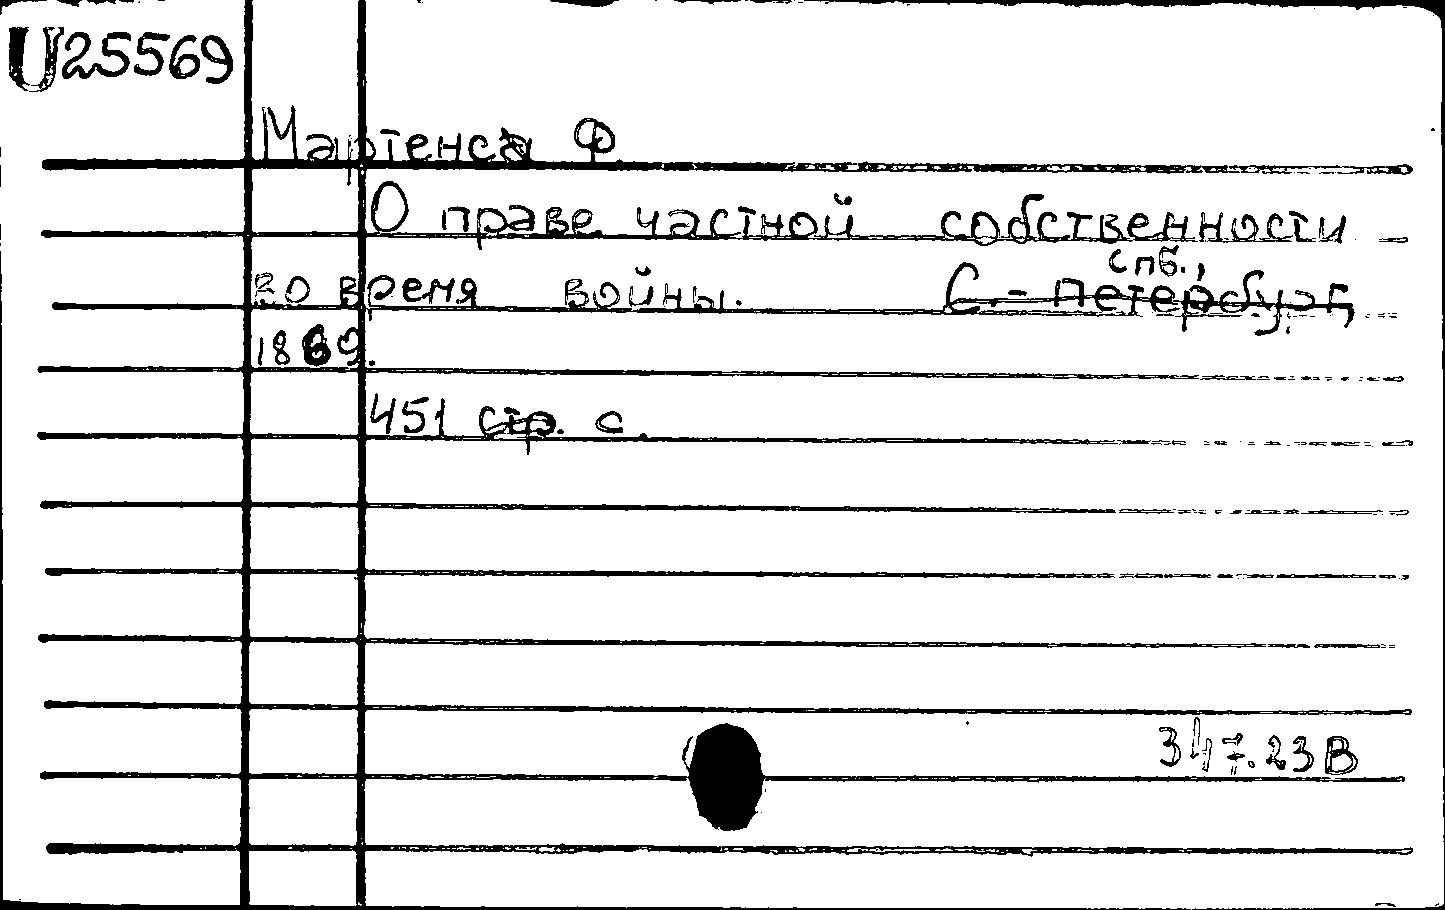 U25569
Мартенс Ф
О праве частной собственности
спб.,
во время войны. С.-Петербург,
1869.
451 стр. с.
347.23В